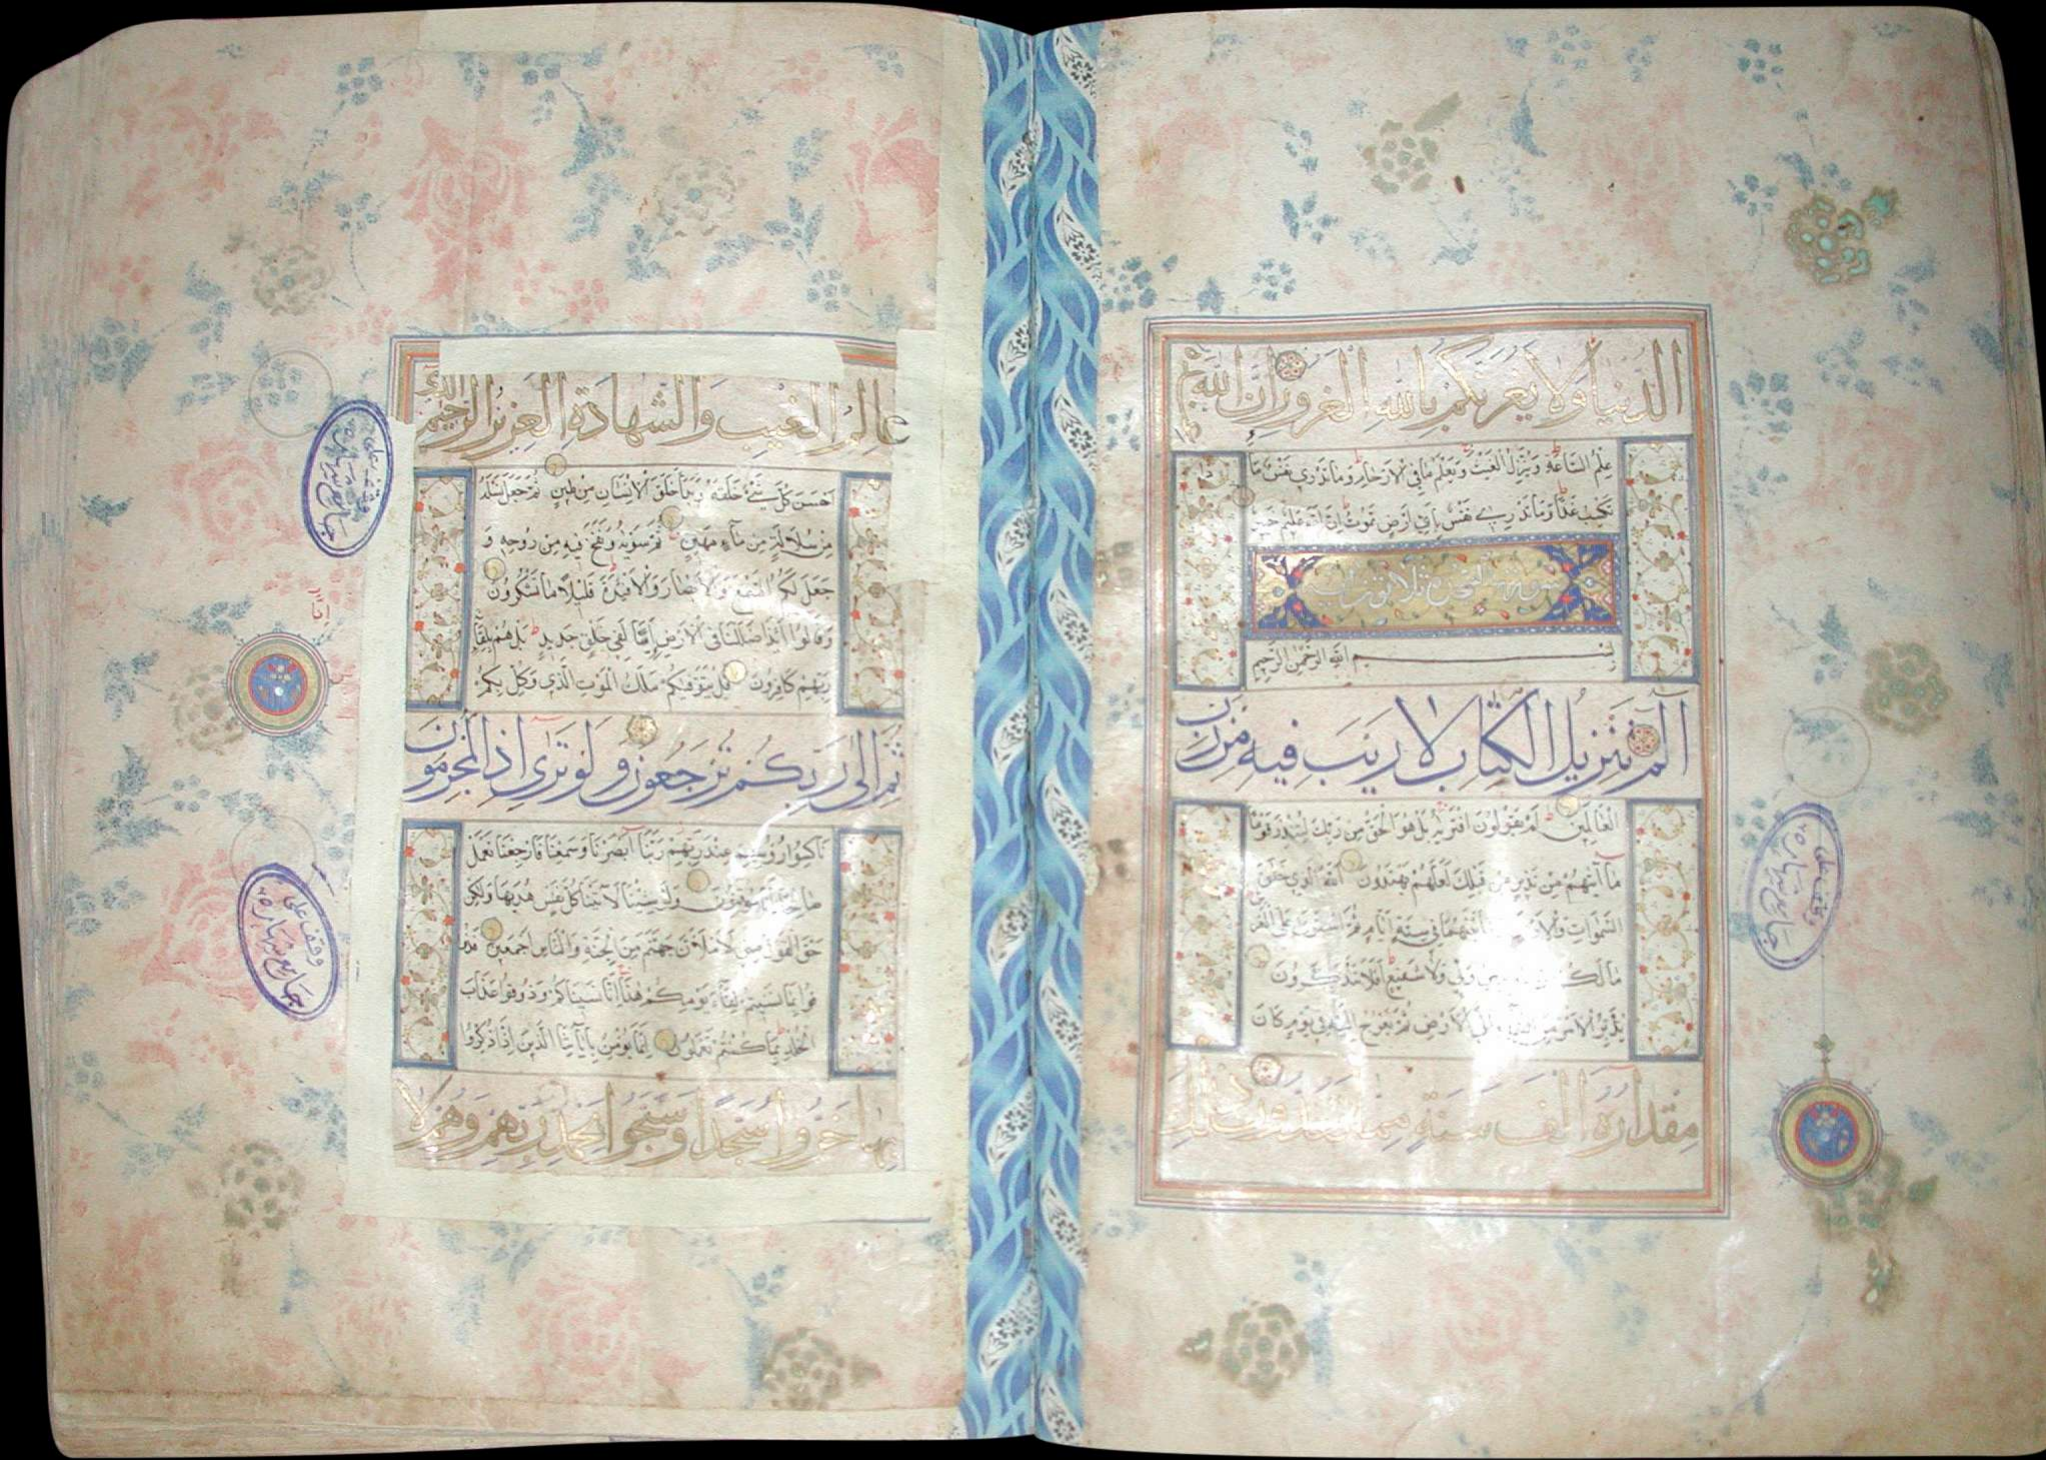 الدُّنْيَا وَلَا يَغُرَّنَّكُمْ بِاللَّهِ الْغَرُورُ إِنَّ اللَّهَ عِنْدَهُ
عِلْمُ السَّاعَةِ وَيُنَزِّلُ الْغَيْثَ وَيَعْلَمُ مَا فِي الْأَرْحَامِ وَمَا تَدْرِي نَفْسٌ مَا
تَكْسِبُ غَدًا وَمَا تَدْرِي نَفْسٌ بِأَيِّ أَرْضٍ تَمُوتُ إِنَّ اللَّهَ عَلِيمٌ خَبِيرٌ
سورة السجدة ثلاثون آية
بسم الله الرحمن الرحيم
الم تَنْزِيلُ الْكِتَابِ لَا رَيْبَ فِيهِ مِنْ رَبِّ
الْعَالَمِينَ أَمْ يَقُولُونَ افْتَرَيهُ بَلْ هُوَ الْحَقُّ مِنْ رَبِّكَ لِتُنْذِرَ قَوْمًا
مَا أَتَيهُمْ مِنْ نَذِيرٍ مِنْ قَبْلِكَ لَعَلَّهُمْ يَهْتَدُونَ اللَّهُ الَّذِي خَلَقَ
السَّمَوَاتِ وَالْأَرْضَ وَمَا بَيْنَهُمَا فِي سِتَّةِ أَيَّامٍ ثُمَّ اسْتَوَى عَلَى الْعَرْشِ
مَا لَكُمْ مِنْ دُونِهِ مِنْ وَلِيٍّ وَلَا شَفِيعٍ أَفَلَا تَتَذَكَّرُونَ
يُدَبِّرُ الْأَمْرَ مِنَ السَّمَاءِ إِلَى الْأَرْضِ ثُمَّ يَعْرُجُ إِلَيْهِ فِي يَوْمٍ كَانَ
مِقْدَارُهُ أَلْفَ سَنَةٍ مِمَّا تَعُدُّونَ ذَلِكَ
وقف على
جامع بندنهاره
عَالِمُ الْغَيْبِ وَالشَّهَادَةِ الْعَزِيزُ الرَّحِيمُ الَّذِي
أَحْسَنَ كُلَّ شَيْءٍ خَلَقَهُ وَبَدَأَ خَلْقَ الْإِنْسَانِ مِنْ طِينٍ ثُمَّ جَعَلَ نَسْلَهُ
مِنْ سُلَالَةٍ مِنْ مَاءٍ مَهِينٍ ثُمَّ سَوَّيهُ وَنَفَخَ فِيهِ مِنْ رُوحِهِ وَ
جَعَلَ لَكُمُ السَّمْعَ وَالْأَبْصَارَ وَالْأَفْئِدَةَ قَلِيلًا مَا تَشْكُرُونَ
وَقَالُوا أَئِذَا ضَلَلْنَا فِي الْأَرْضِ أَئِنَّا لَفِي خَلْقٍ جَدِيدٍ بَلْ هُمْ بِلِقَاءِ
رَبِّهِمْ كَافِرُونَ قُلْ يَتَوَفَّيكُمْ مَلَكُ الْمَوْتِ الَّذِي وُكِّلَ بِكُمْ
ثُمَّ إِلَى رَبِّكُمْ تُرْجَعُونَ وَلَوْ تَرَى إِذِ الْمُجْرِمُونَ
نَاكِسُوا رُؤُسِهِمْ عِنْدَ رَبِّهِمْ رَبَّنَا أَبْصَرْنَا وَسَمِعْنَا فَارْجِعْنَا نَعْمَلْ
صَالِحًا إِنَّا مُوقِنُونَ وَلَوْ شِئْنَا لَآتَيْنَا كُلَّ نَفْسٍ هُدَيهَا وَلَكِنْ
حَقَّ الْقَوْلُ مِنِّي لَأَمْلَأَنَّ جَهَنَّمَ مِنَ الْجِنَّةِ وَالنَّاسِ أَجْمَعِينَ فَذُ
وقُوا بِمَا نَسِيتُمْ لِقَاءَ يَوْمِكُمْ هَذَا إِنَّا نَسِينَاكُمْ وَذُوقُوا عَذَابَ
الْخُلْدِ بِمَا كُنْتُمْ تَعْمَلُونَ إِنَّمَا يُؤْمِنُ بِآيَاتِنَا الَّذِينَ إِذَا ذُكِّرُوا
بِهَا خَرُّوا سُجَّدًا وَسَبَّحُوا بِحَمْدِ رَبِّهِمْ وَهُمْ لَا
وقف على
وقف على